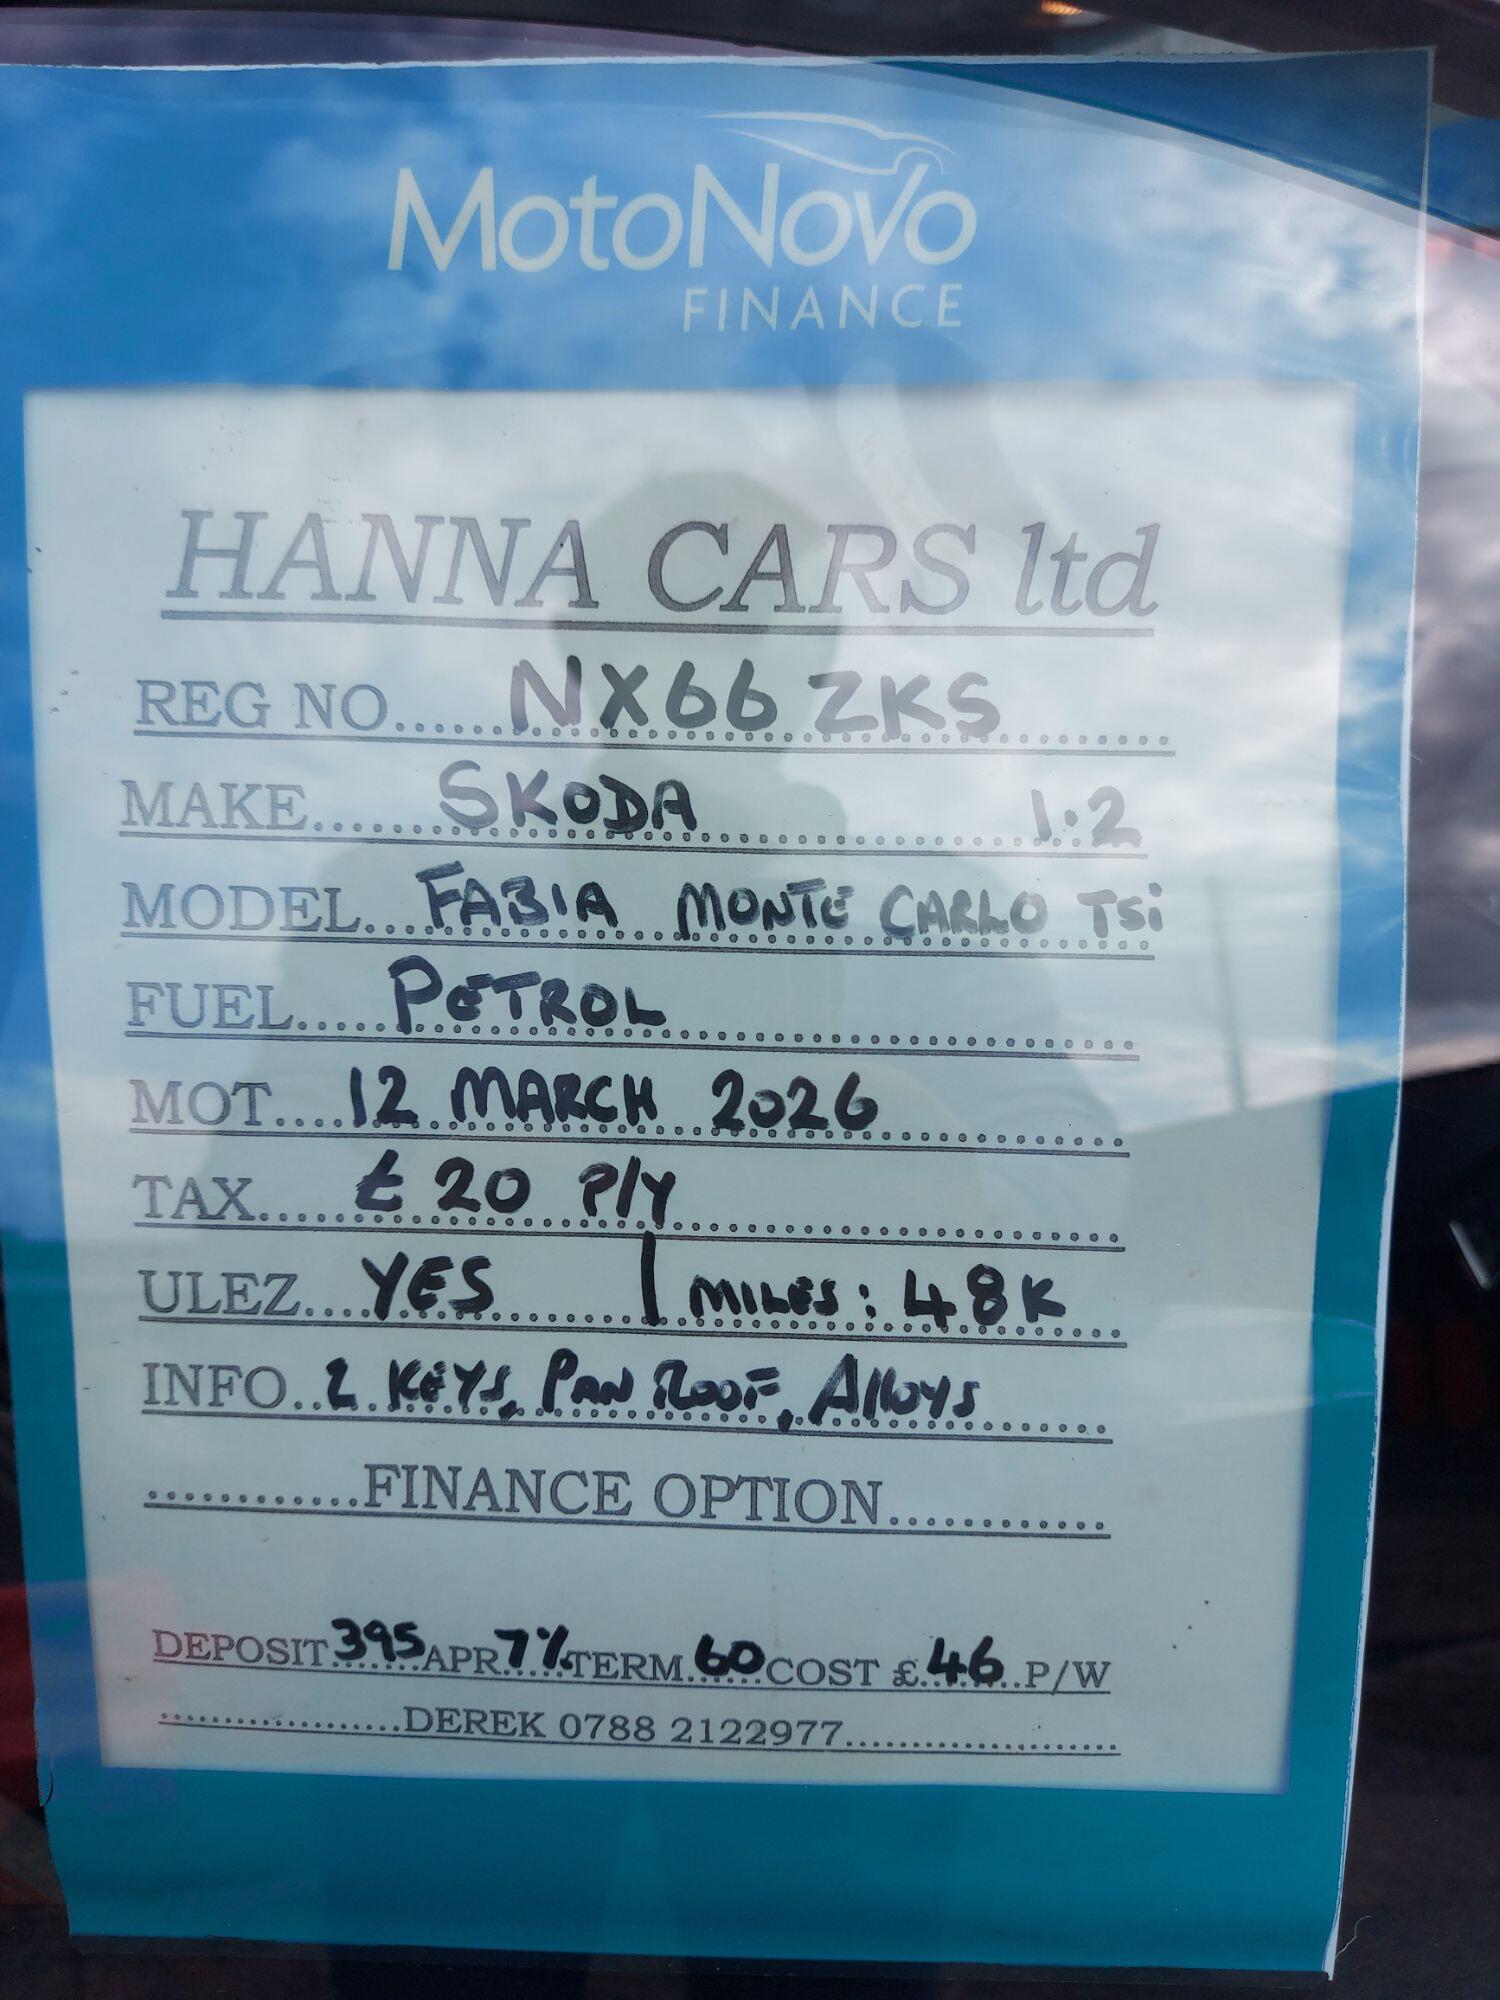 MotoNovo
FINANCE
HANNA CARS ltd
REG NO...... NX66 ZKS
MAKE...... SKODA 1.2
MODEL... FABIA MONTE CARLO TSi
FUEL..... PETROL
MOT.... 12 MARCH 2026
TAX..... £20 P/Y
ULEZ.... YES | MILES: 48K
INFO.. 2 KEYS, PAN ROOF, Alloys
............FINANCE OPTION............
DEPOSIT 395 APR 7% TERM 60 COST £ 46 P/W
..................DEREK 0788 2122977......................